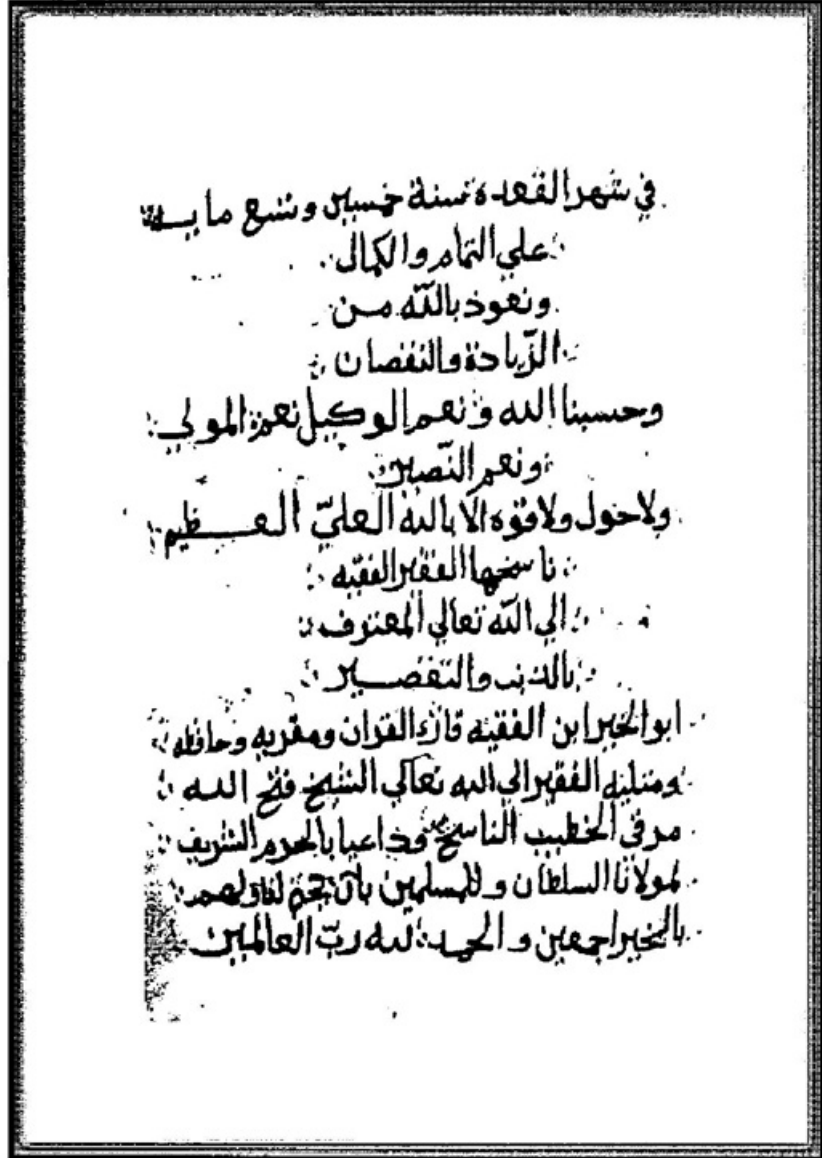 في شهر القعدة سنة خمسين وتسع مايه
علي التمام والكمال
ونعوذ بالله من
الزّيادة والنقصان
وحسبنا الله ونعم الوكيل نعم المولي
ونعم النّصير
ولا حول ولا قوه الا بالله العليّ العظيم
ناسخها الفقير الفقيه
الي الله تعالي المعترف
بالذنب والتقصير
ابو الخير ابن الفقيه قارئ القران ومقريه وحافظه
الفقير الي الله تعالي الشيخ فتح الله
مرقى الخطيب الناسخ وداعيا بالحرم الشريف
لمولانا السلطان وللمسلمين بان يختم لنا ولهم
بالخير اجمعين والحمد لله ربّ العالمين